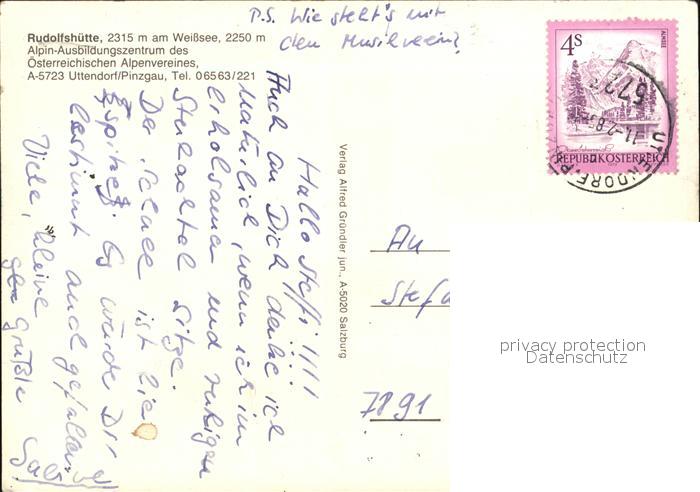 Rudolfshütte, 2315 m am Weißsee, 2250 m
Alpin-Ausbildungszentrum des
Österreichischen Alpenvereines,
A-5723 Uttendorf/Pinzgau, Tel. 06563/221
P.S. Wie steht's mit
dem Musikverein?
4S
ALMSEE
REPUBLIK ÖSTERREICH
5723
-1.-2-83
UTTENDORF, PI
Hallo Steffi !!!!
Auch an Dich denke ich
natürlich, wenn ich im
erholsamen und ruhigen
Stubachtal sitze.
Der Schnee ist hier
spitze! Es würde Dir
bestimmt auch gefallen
Viele, kleine
Grüßle
Gabi
Verlag Alfred Gründler jun., A-5020 Salzburg
An
Stefa
7891
privacy protection
Datenschutz